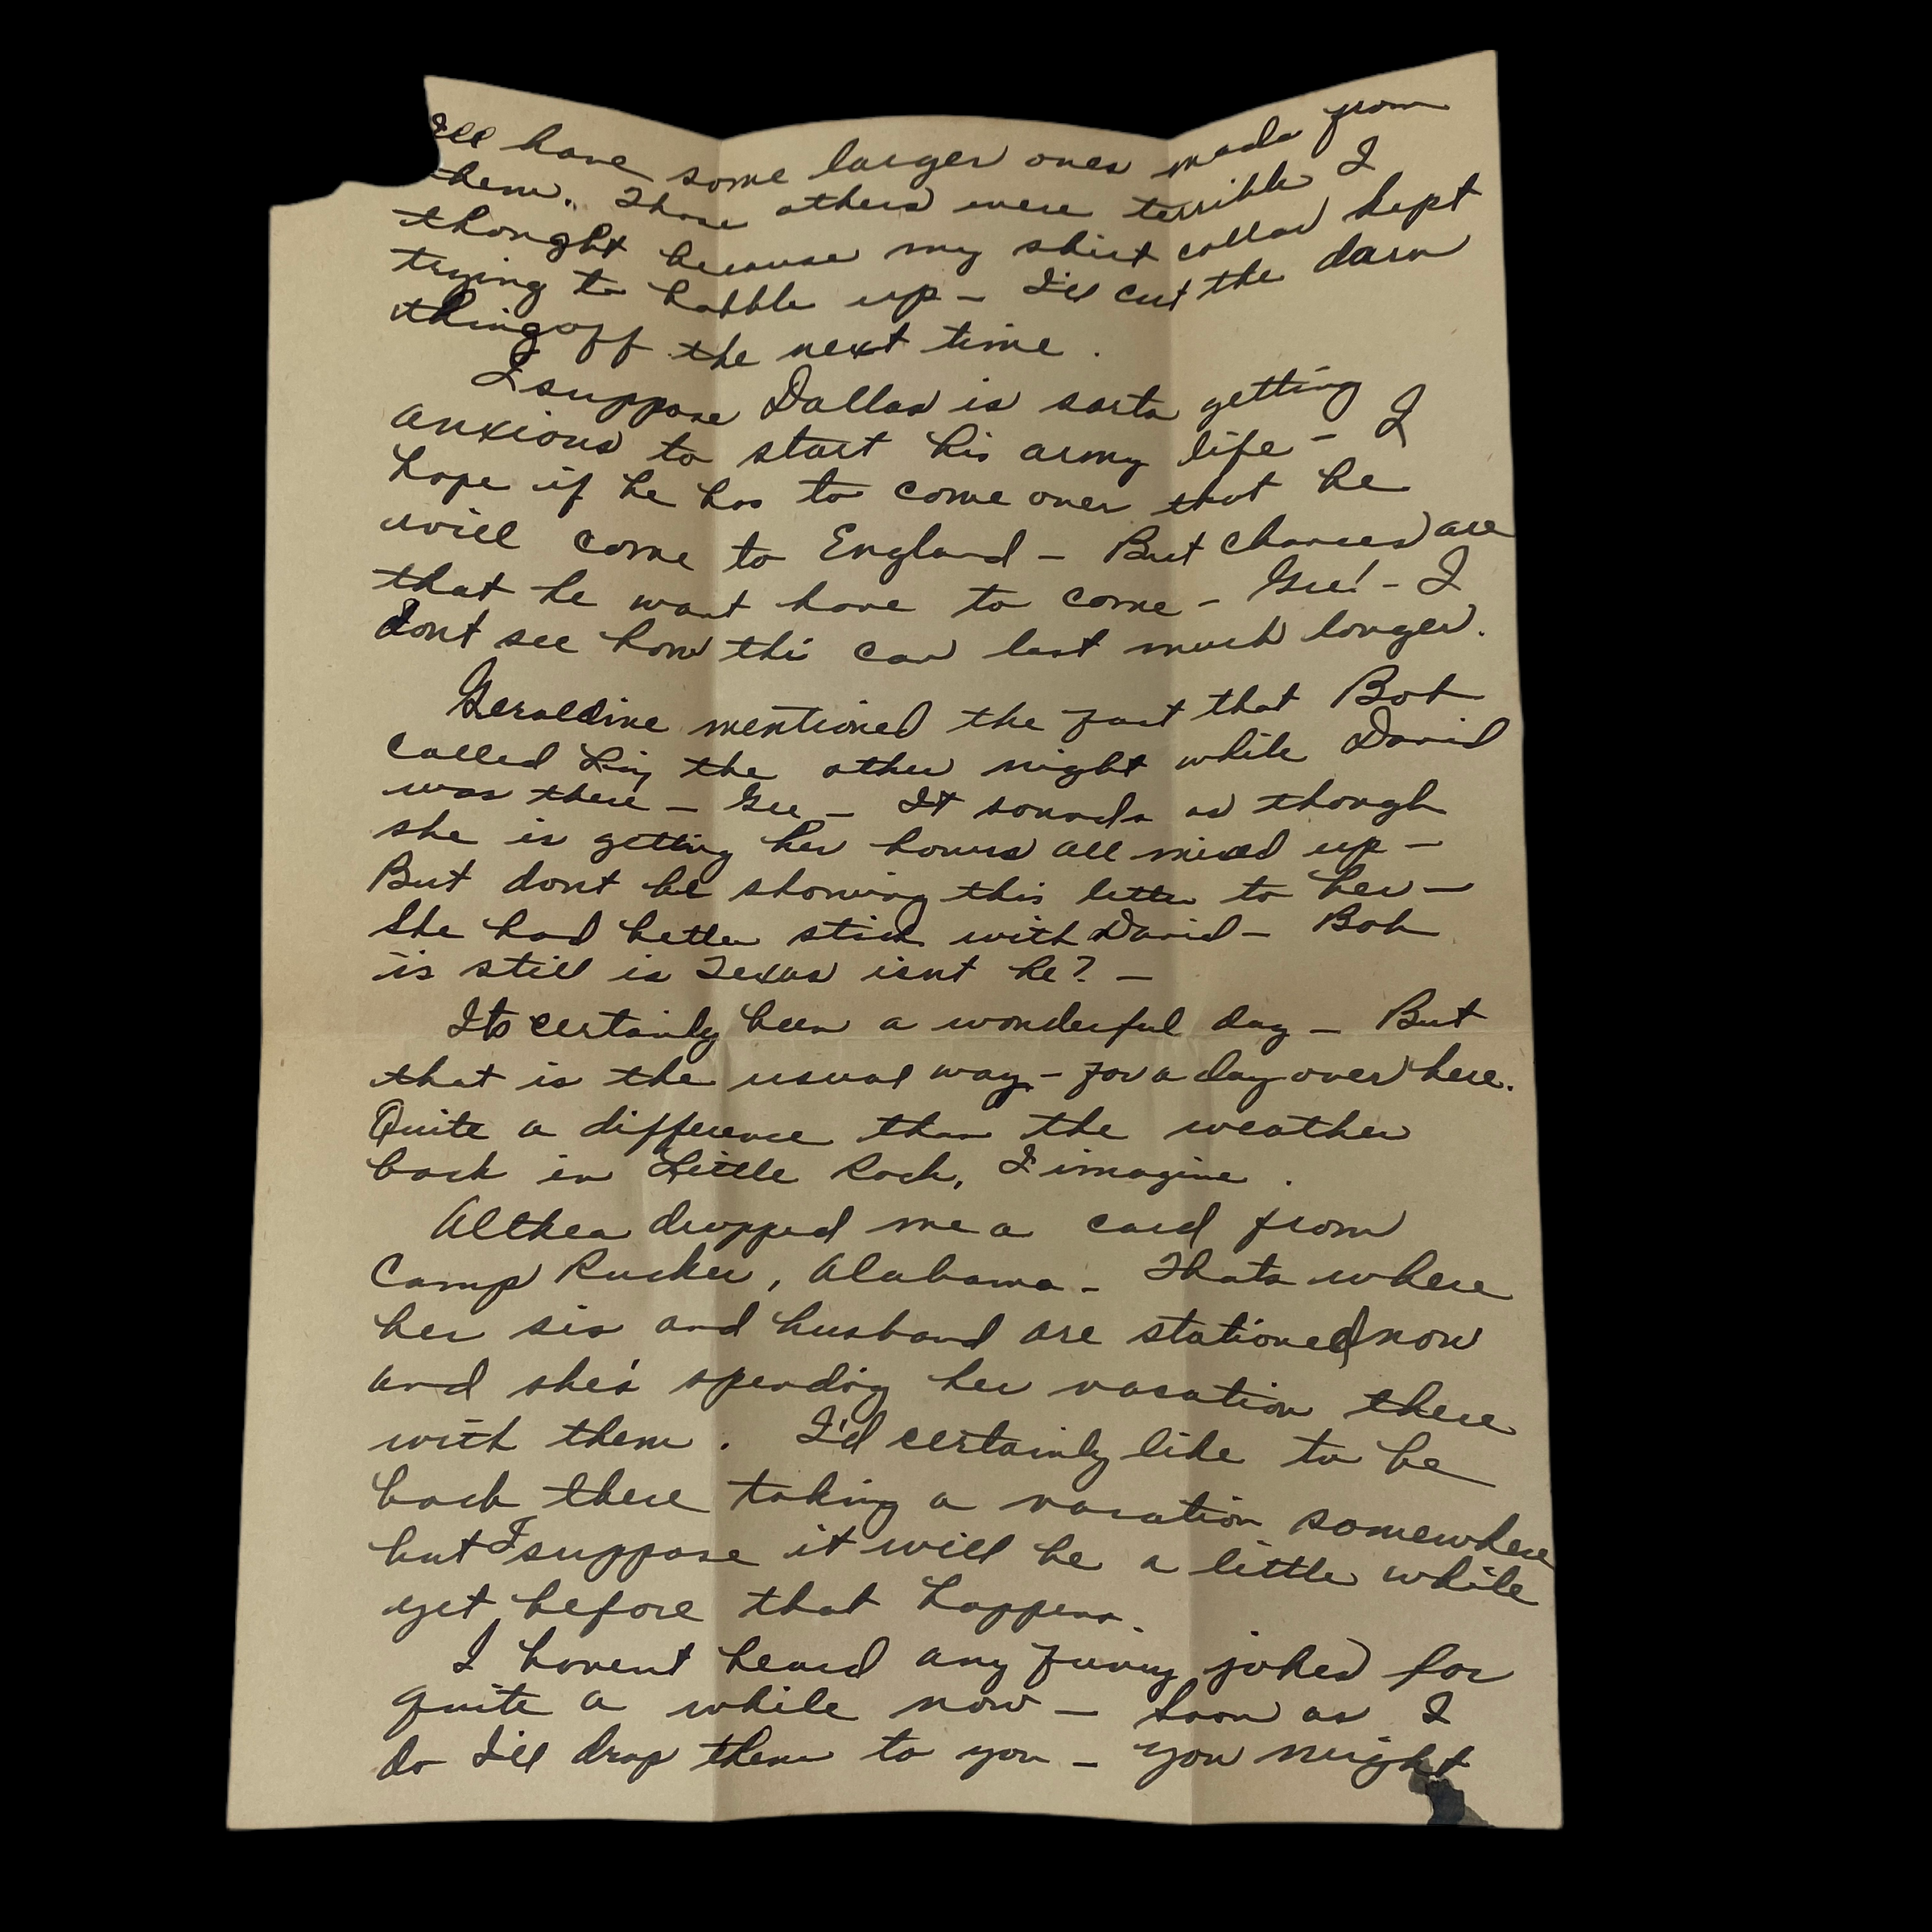 I'll have some larger ones made from
them. Those others were terrible I
thought because my shirt collar kept
trying to bobble up - I'll cut the darn
thing off the next time.
I suppose Dallas is sorta getting
anxious to start his army life - I
hope if he has to come over that he
will come to England - But chances are
that he wont have to come - Gee! - I
dont see how thi can last much longer.
Geraldine mentioned the fact that Bob
called the other night while David
was there - Gee - It sounds as though
she is getting her hours all mixed up -
But dont be showing this letter to her -
She had better stick with David - Bob
is still in Texas isnt he? -
Its certainly been a wonderful day - But
that is the usual way - for a day over here.
Quite a difference than the weather
back in Little Rock, I imagine.
Althea dropped me a card from
Camp Rucker, Alabama - Thats where
her sis and husband are stationed now
and she's spending her vacation there
with them. I'd certainly like to be
back there taking a vacation somewhere
but I suppose it will be a little while
yet before that happens.
I havent heard any funny jokes for
quite a while now - Soon as I
do I'll drop them to you - you might